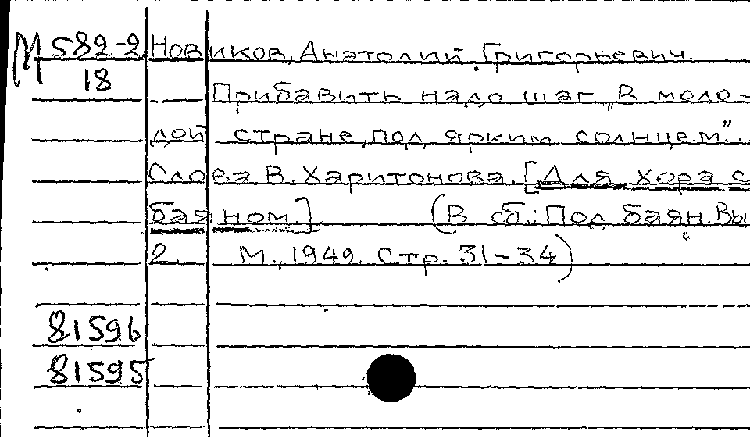 М 582-2 Новиков, Анатолий Григорьевич.
18
Прибавить надо шаг „В моло-
дой стране, под ярким солнцем".
Слова В. Харитонова. [Для хора с
баяном.] (В сб.: Под баян. Вы
2. М., 1949. Стр. 31-34)
81596
81595